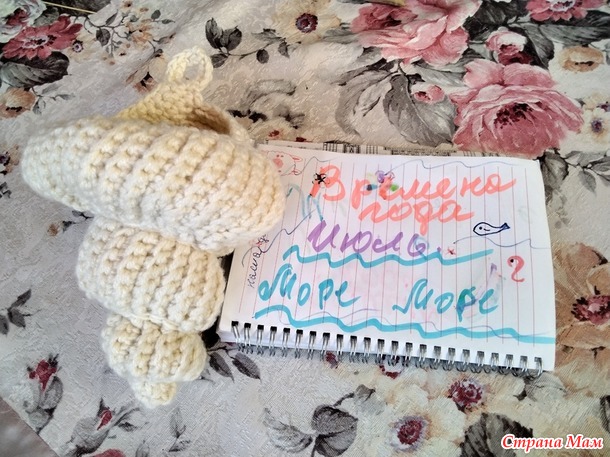 Времена
года
Июль
Море Море
Страна Мам